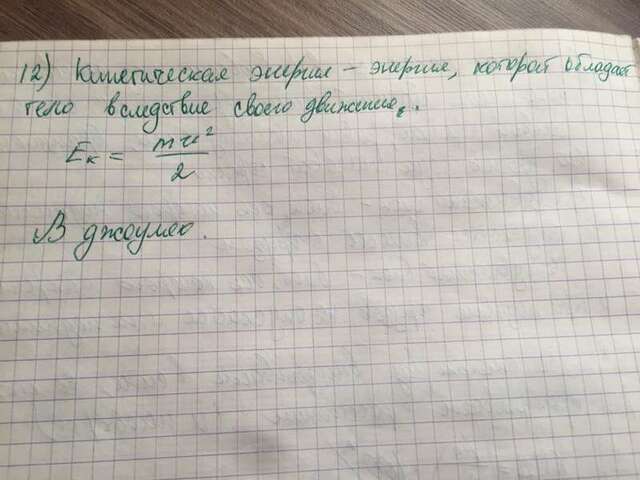 12) Кинетическая энергия - энергия, которой обладает
тело вследствие своего движения.
Eк = mv²/2
В джоулях.